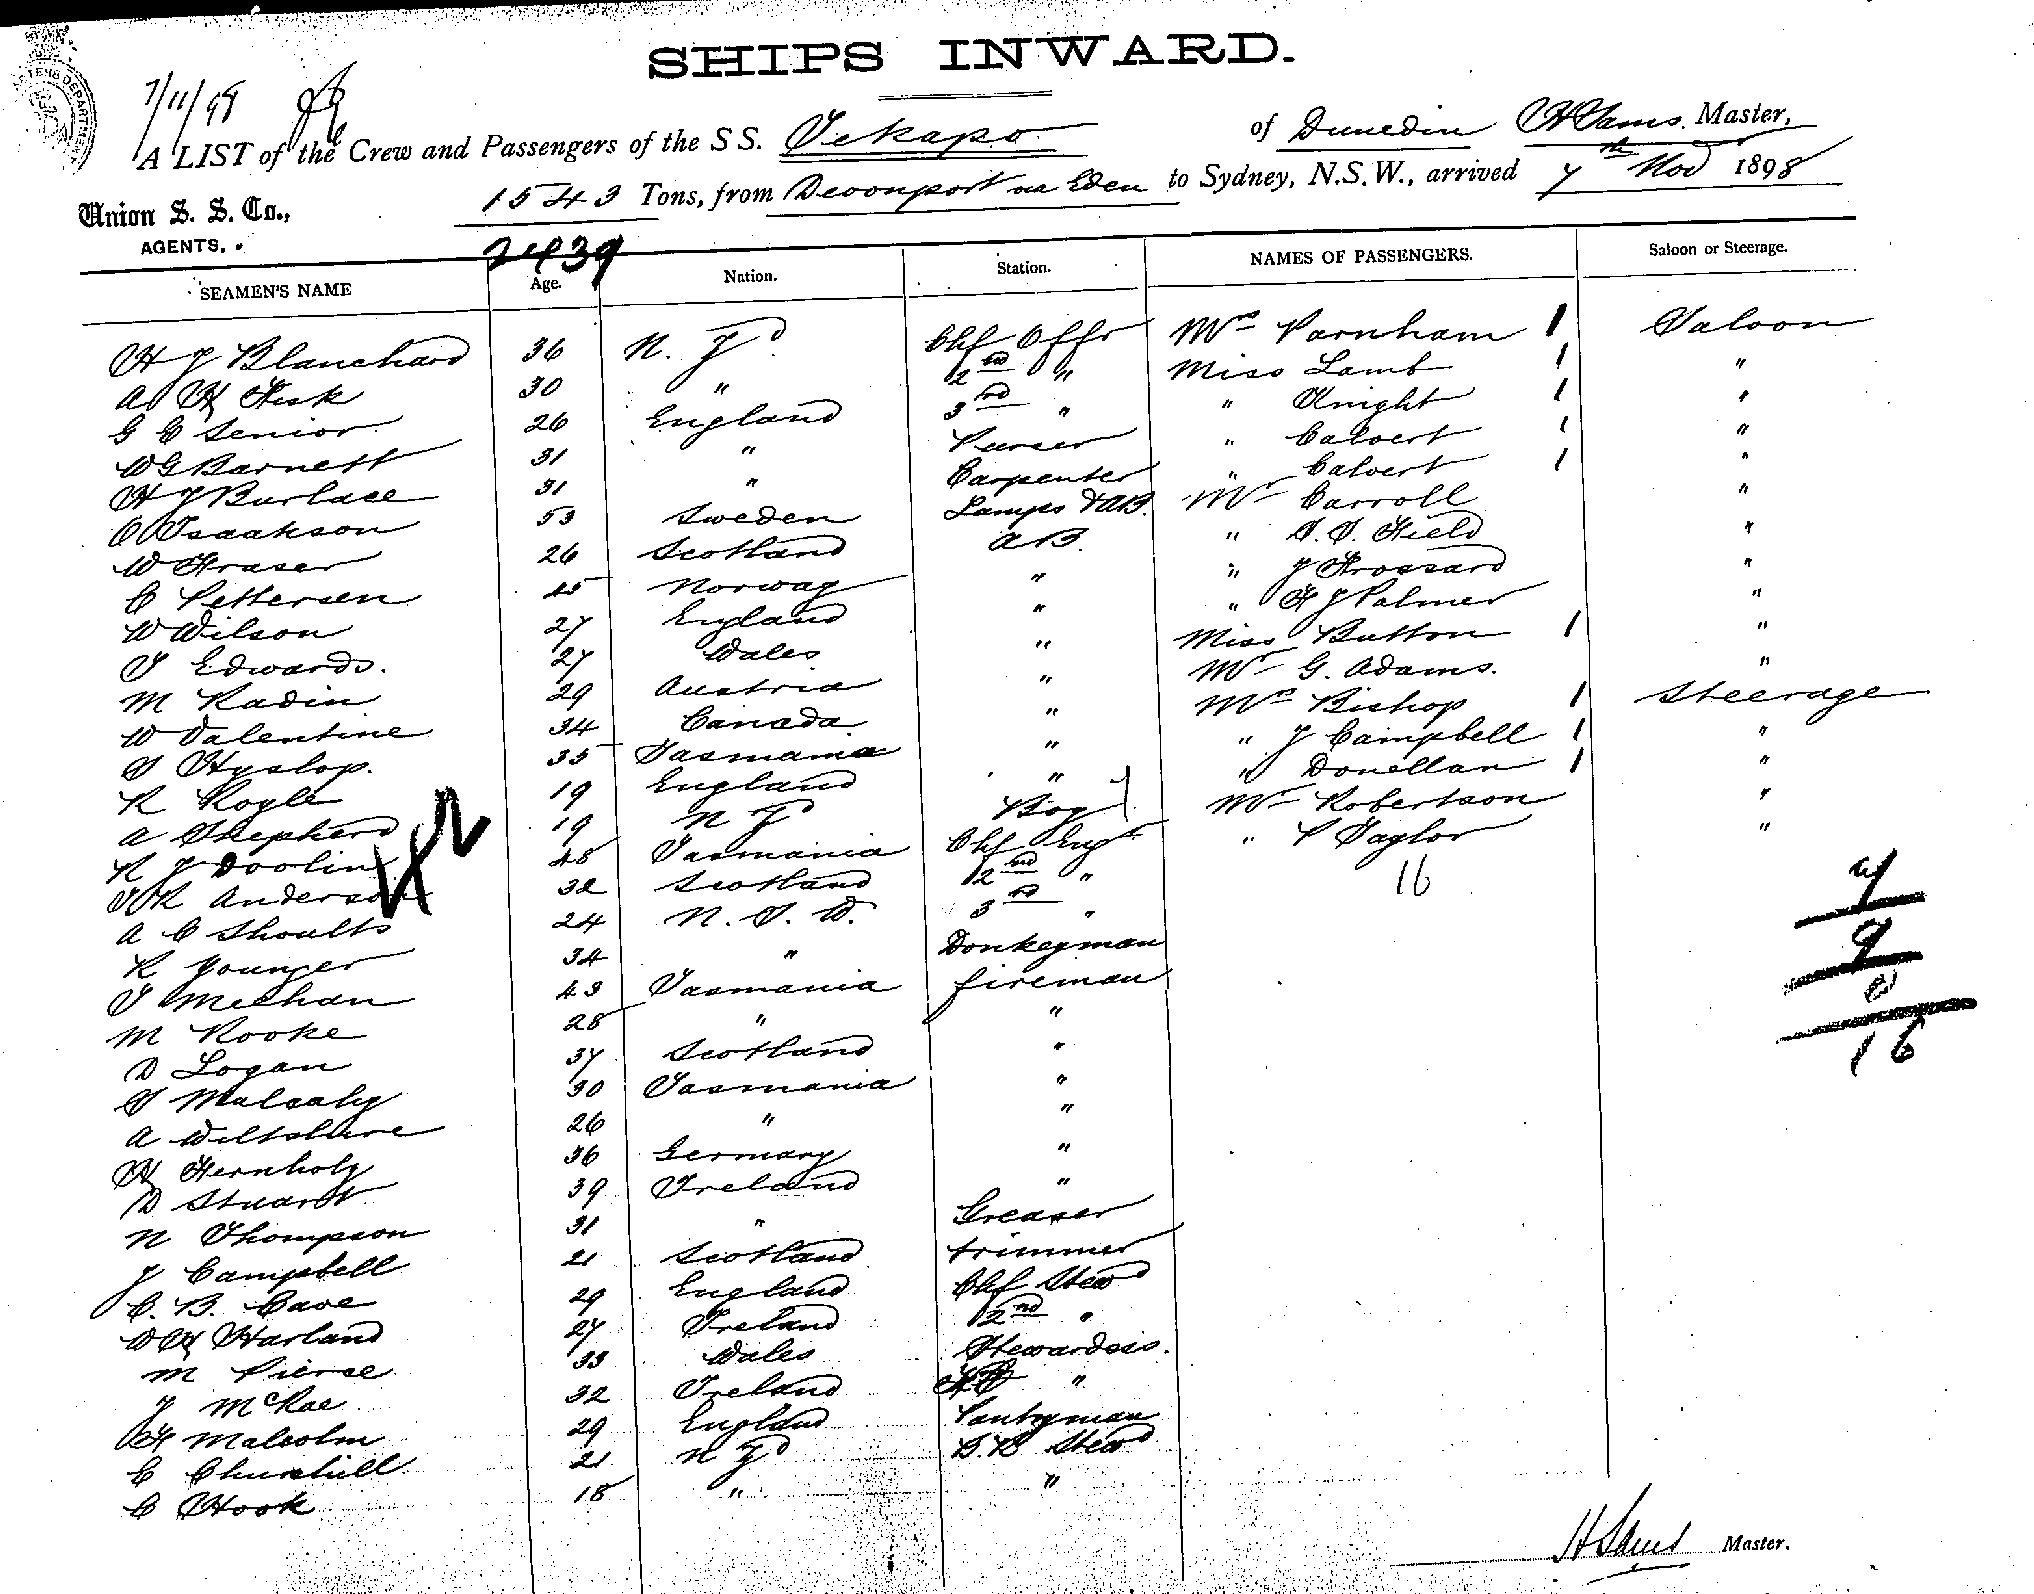 SHIPS INWARD.
7/11/98
A LIST of the Crew and Passengers of the S S. Tekapo of Dunedin H Sams. Master,
Union S. S. Co., 1543 Tons, from Devonport via Eden to Sydney, N.S.W., arrived 7th Nov 1898
AGENTS. 2439
SEAMEN'S NAME Age. Nation. Station. NAMES OF PASSENGERS. Saloon or Steerage.
H J Blanchard 36 N. Zd. Chf Offr Mrs Parnham 1 Saloon
A H Fisk 30 " 2nd " Miss Lamb 1 "
G E Senior 26 England 3rd " " Knight 1 "
W G Barnett 31 " Purser " Calvert 1 "
H J Burlace 31 " Carpenter " Calvert 1 "
O Isaakson 53 Sweden Lamps & AB. Mr Carroll "
W Fraser 26 Scotland AB. " T. S. Field "
C Pettersen 45 Norway " " J Frossard "
W Wilson 27 England " " H J Palmer "
T Edwards. 27 Wales " Miss Button 1 "
M Radin 29 Austria " Mr G. Adams. "
W Valentine 34 Canada " Mrs Bishop 1 Steerage
S Hyslop. 35 Tasmania " " J Campbell 1 "
R Rogle 19 England " " Donellan 1 "
A Shepherd 19 N Zd Boy 1 Mr Robertson "
R J Doolin 48 Tasmania Chf Engr " P Taylor "
T R Anderson 32 Scotland 2nd " 16
A C Shoults 24 N. S. W. 3rd "
R Younger 34 " Donkeyman
T Meehan 43 Tasmania fireman
M Rooke 28 " "
D Logan 37 Scotland "
T Mulcahy 30 Tasmania "
A Wiltshire 26 " "
H Fernholz 36 Germany "
D Stuart 39 Ireland "
N Thompson 31 " Greaser
J Campbell 21 Scotland trimmer
C. B. Cave 29 England Chf Stewd
W H Harland 27 Ireland 2nd "
M Pierce 33 Wales Stewardess.
J McRae 32 Ireland "
H Malcolm 29 England Pantryman
C Churchill 21 N Zd B.R Stewd
C Hook 18 " "
9
16
H Sams Master.